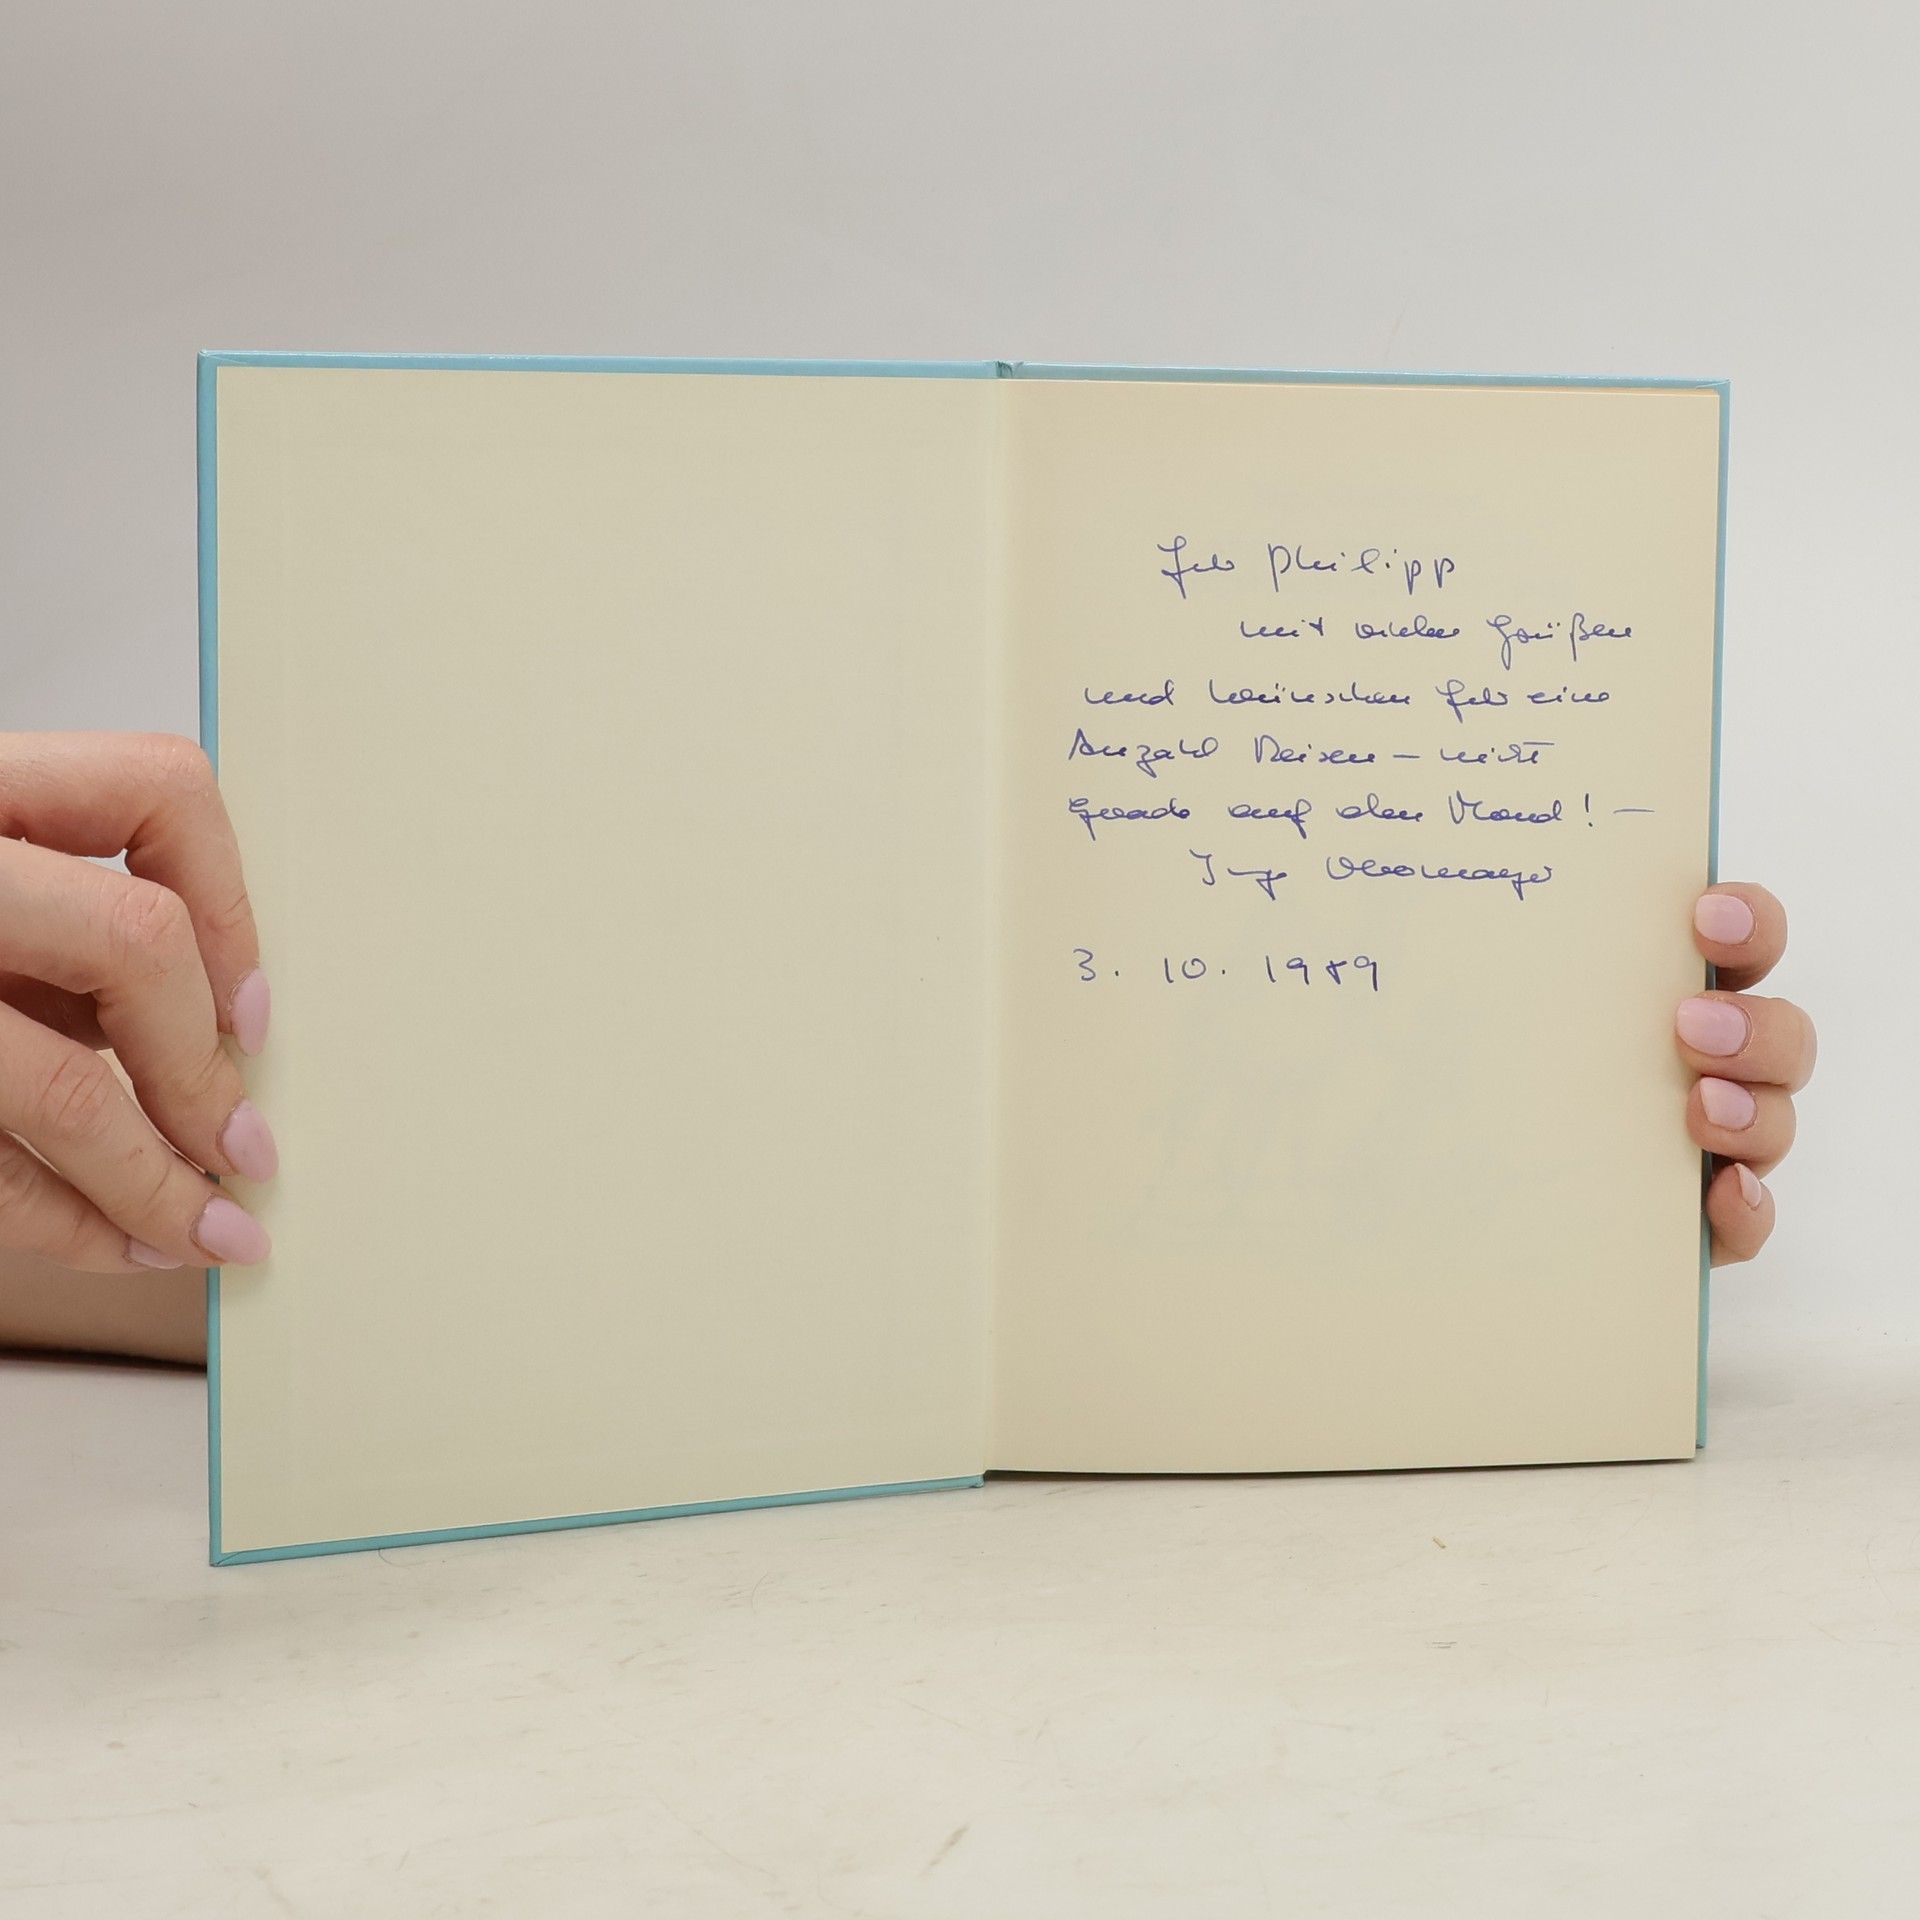 für Philipp
mit vielen Grüßen
und Wünschen für eine
Anzahl Reisen – nicht
gerade auf den Mond! –
Inge Obermayer
3. 10. 1989